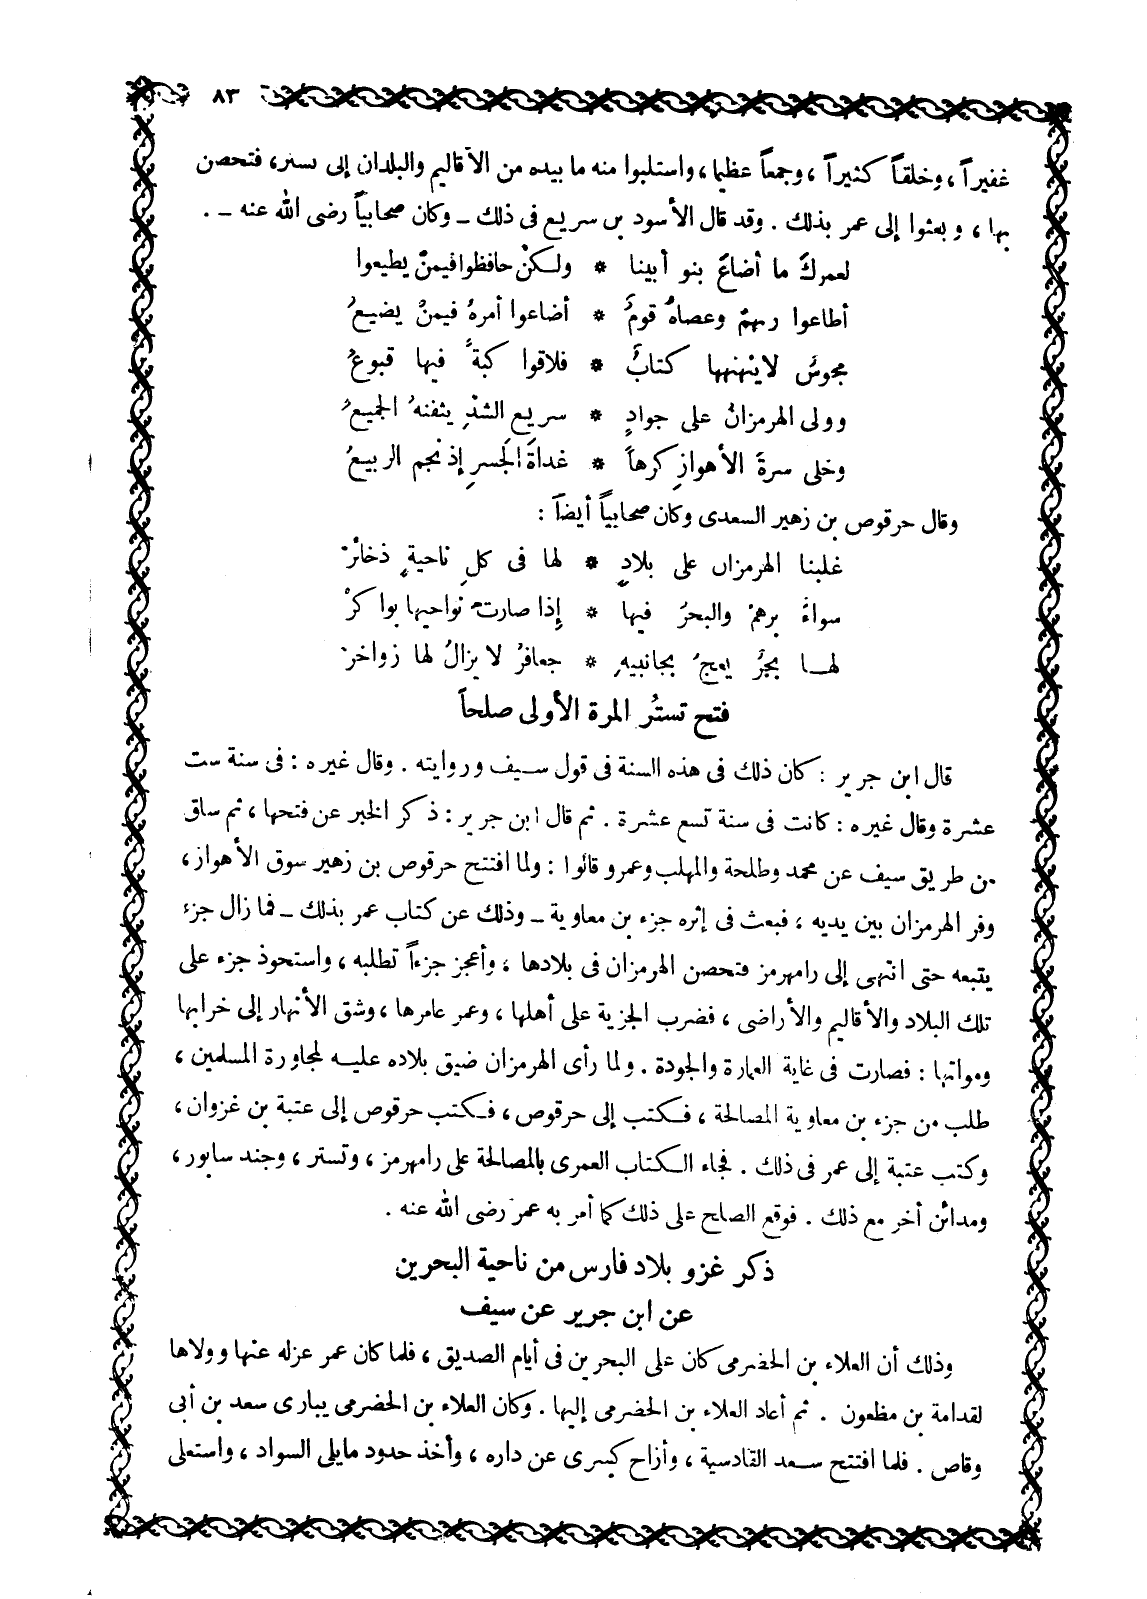 ٨٣
غفيراً ، وخلقاً كثيراً ، وجمعاً عظيما ، واستلبوا منه ما بيده من الأقاليم والبلدان إلى تستر ، فتحصن
بها ، و بعثوا إلى عمر بذلك . وقد قال الأسود بن سريع فى ذلك ــ وكان صحابياً رضى الله عنه ــ .
لعمركَ ما أضاعَ بنو أبينا * ولـكنْ حافظوا فيمنْ يطيعوا
أطاعوا ربهمْ وعصاهُ قومٌ * أضاعوا أمرهُ فيمنْ يضيعُ
مجوسٌ لاينهنهها كتابٌ * فلاقوا كبةً فيها قبوعُ
وولى الهرمزانُ على جوادٍ * سريع الشدِ يثفنهُ الجميعُ
وخلى سرةَ الأهوازِ كرهاً * غداةَ الجسرِ إذ نجم الربيعُ
وقال حرقوص بن زهير السعدى وكان صحابياً أيضاً :
غلبنا الهرمزان على بلادٍ * لها فى كلِ ناحيةٍ ذخائرْ
سواءٌ برهمْ والبحرُ فيها * إذا صارتْ نواحيها بواكرْ
لهـا بحرٌ يعجُ بجانبيهِ * جعافرُ لا يزالُ لها زواخرْ
فتح تستُر المرة الأولى صلحاً
قال ابن جرير : كان ذلك فى هذه السنة فى قول سيف وروايته . وقال غيره : فى سنة ست
عشرة وقال غيره : كانت فى سنة تسع عشرة . ثم قال ابن جرير : ذكر الخبر عن فتحها ، ثم ساق
من طريق سيف عن محمد وطلحة والمهلب وعمرو قالوا : ولما افتتح حرقوص بن زهير سوق الأهواز ،
وفر الهرمزان بين يديه ، فبعث فى إثره جزء بن معاوية ــ وذلك عن كتاب عمر بذلك ــ فما زال جزء
يتبعه حتى انتهى إلى رامهرمز فتحصن الهرمزان فى بلادها ، وأعجز جزءاً تطلبه ، واستحوذ جزء على
تلك البلاد والأقاليم والأراضى ، فضرب الجزية على أهلها ، وعمر عامرها ، وشق الأنهار إلى خرابها
ومواتها : فصارت فى غاية العمارة والجودة . ولما رأى الهرمزان ضيق بلاده عليـه لمجاورة المسلمين ،
طلب من جزء بن معاوية المصالحة ، فـكتب إلى حرقوص ، فـكتب حرقوص إلى عتبة بن غزوان ،
وكتب عتبة إلى عمر فى ذلك . فجاء الـكتاب العمرى بالمصالحة على رامهرمز ، وتستر ، وجند سابور ،
ومدائن أخر مع ذلك . فوقع الصلح على ذلك كما أمر به عمر رضى الله عنه .
ذكر غزو بلاد فارس من ناحية البحرين
عن ابن جرير عن سيف
وذلك أن العلاء بن الحضرمى كان على البحرين فى أيام الصديق ، فلما كان عمر عزله عنها وولاها
لقدامة بن مظعون . ثم أعاد العلاء بن الحضرمى إليها . وكان العلاء بن الحضرمى يبارى سعد بن أبى
وقاص . فلما افتتح سـعد القادسية ، وأزاح كسرى عن داره ، وأخذ حدود مايلى السواد ، واستعلى